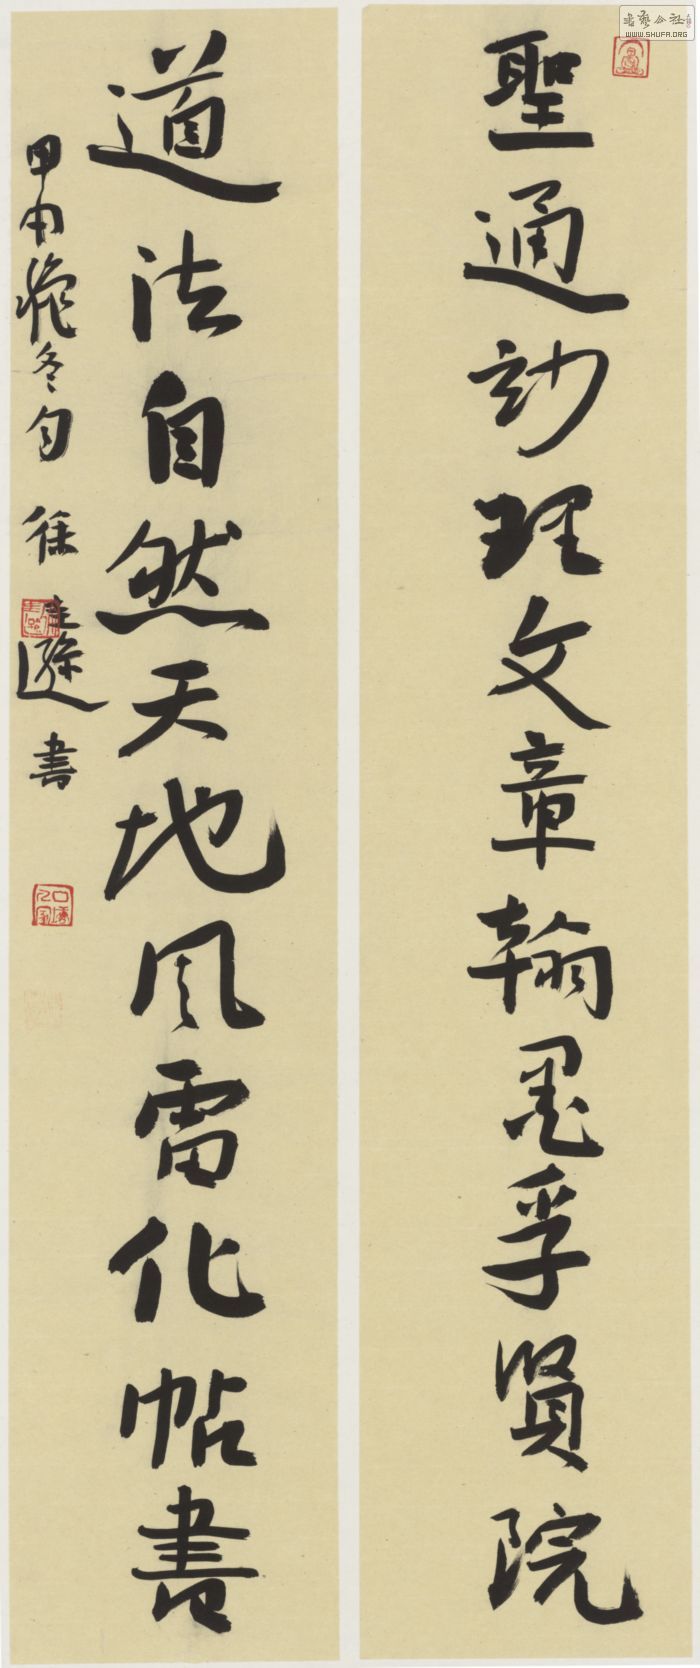 聖通妙理文章翰墨孚賢院
道法自然天地風雷化帖書
甲申
冬旬徐
遜書
書藝公社
WWW.SHUFA.ORG